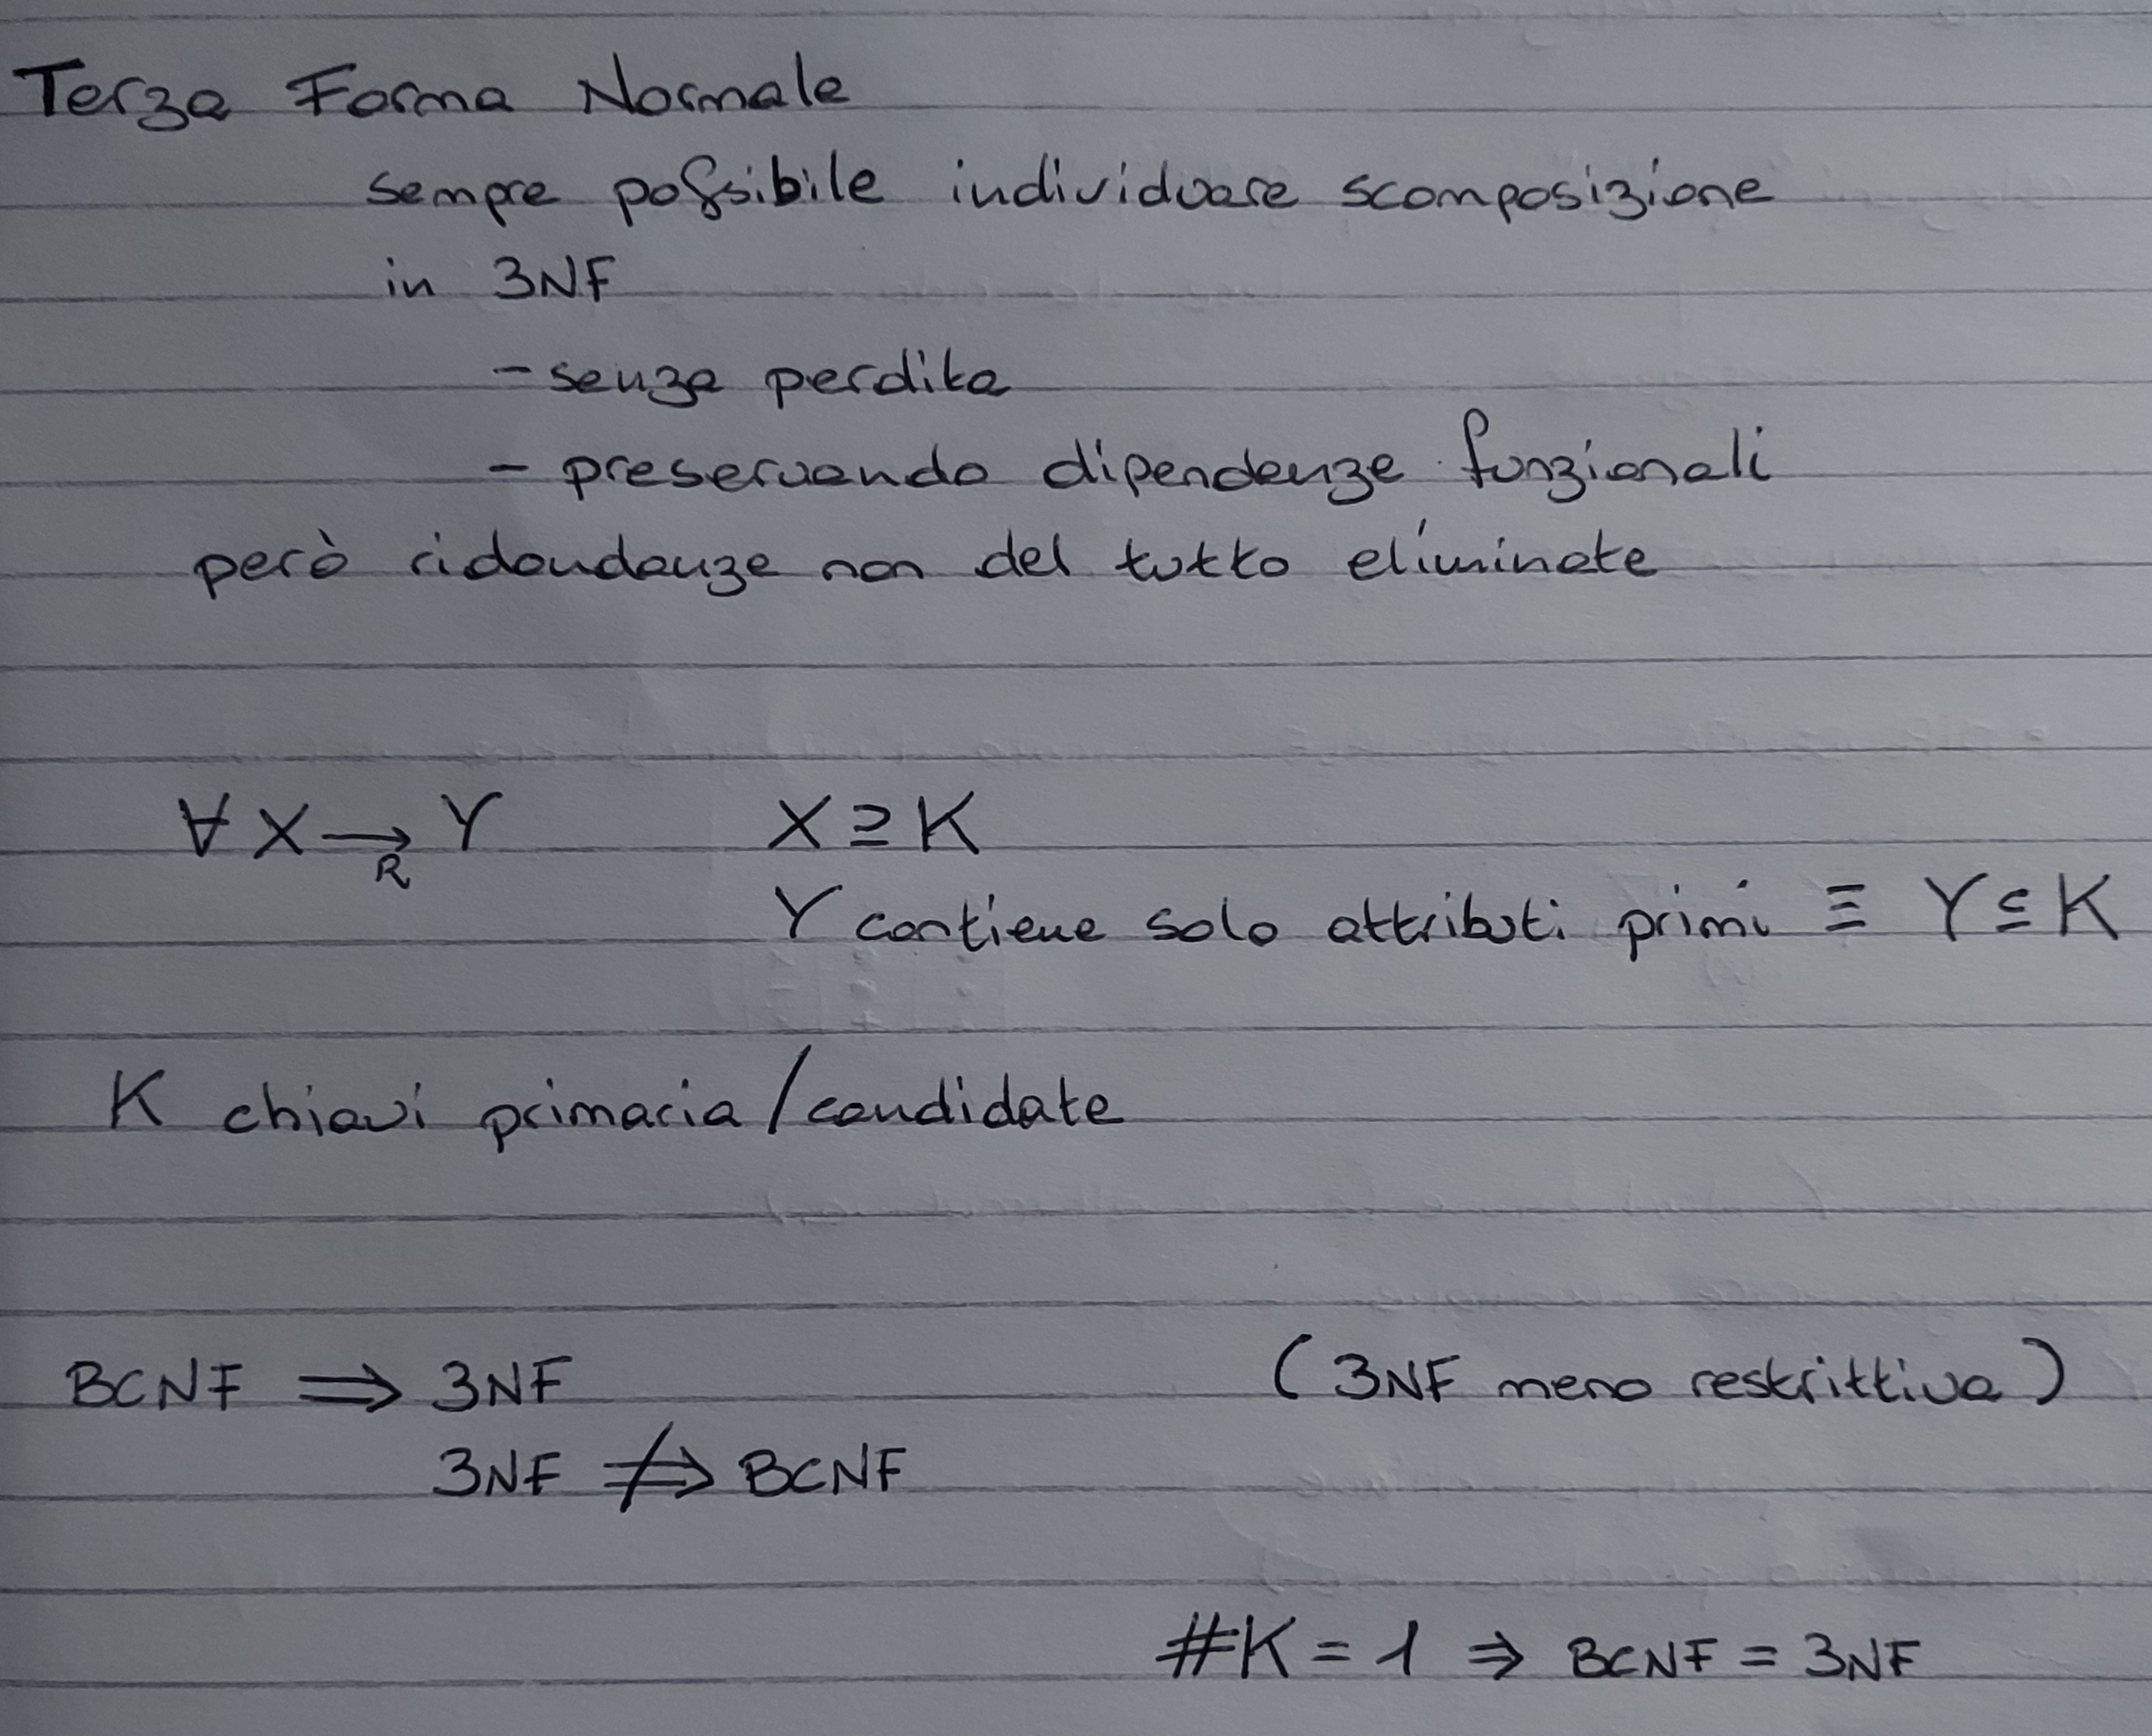 Terza Forma Normale
sempre possibile individuare scomposizione
in 3NF
- senza perdita
- preservando dipendenze funzionali
però ridondanze non del tutto eliminate
∀ X →R Y X ⊇ K
Y contiene solo attributi primi ≡ Y ⊆ K
K chiavi primaria/candidate
BCNF ⇒ 3NF (3NF meno restrittiva)
3NF ⇏ BCNF
#K = 1 ⇒ BCNF = 3NF